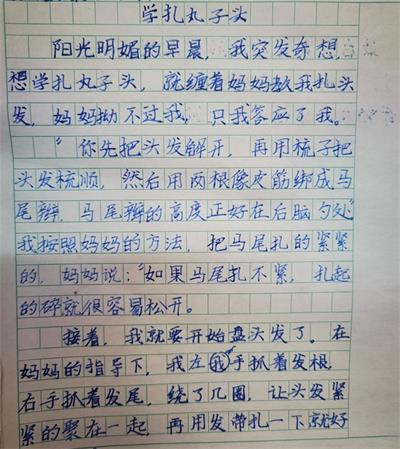 学扎丸子头
阳光明媚的早晨，我突发奇想，
想学扎丸子头，就缠着妈妈教我扎头
发，妈妈拗不过我，只我答应了我。
“你先把头发解开，再用梳子把
头发梳顺，然后用两根像皮筋绑成马
尾辫，马尾辫的高度正好在后脑勺处”
我按照妈妈的方法，把马尾扎的紧紧
的，妈妈说：“如果马尾扎不紧，扎起
的碎就很容易松开。
接着，我就要开始盘头发了。在
妈妈的指导下，我左我手抓着发根，
右手抓着发尾，绕了几圈，让头发紧
紧的聚在一起，再用发带扎一下就好